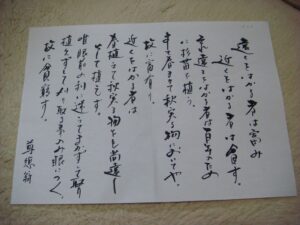 遠くをはかる者は富み
近くをはかる者は貧す。
夫遠きをはかる者は百年のため
に杉苗を植う。
まして春まきて秋実る物においてや。
故に富有り。
近くをはかる者は
春植えて秋実る物をも尚遠し
として植えず。
唯眼前の利に迷うてまかずして取り
植えずして刈り取る事のみ眼につく。
故に貧窮す。
尊徳翁